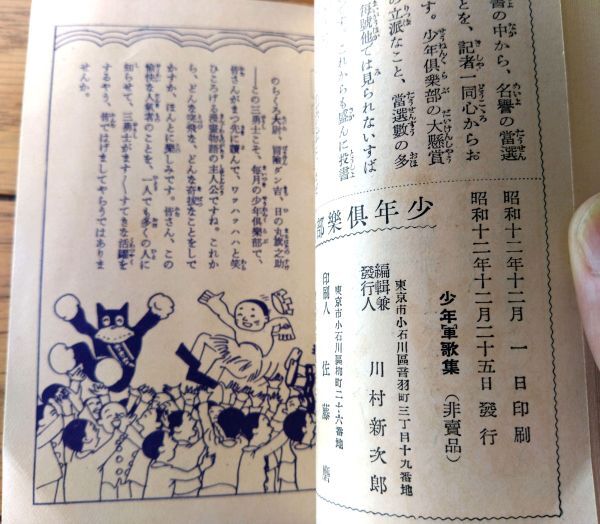 書の中から、名譽の當選
とを、記者一同心からお
す。少年倶樂部の大懸賞
の立派なこと、當選數の多
毎號他では見られないすば
これからも盛んに投書
昭和十二年十二月 一 日印刷
昭和十二年十二月二十五日發行
少年軍歌集 (非賣品)
東京市小石川區音羽町三丁目十九番地
編輯兼發行人 川村新次郎
東京市小石川區柳町二十六番地
印刷人 佐藤
少年倶樂部
のらくろ大尉、冒險ダン吉、日の丸旗之助
――この三勇士こそ、毎月の少年倶樂部で、
皆さんがまつ先に讀んで、ワッハッハハと笑
ひころげる漫畫物語の主人公ですね。これか
ら、どんな突飛な、どんな奇抜なことをして
かすか、ほんとに樂しみです。皆さん、この
愉快な人氣者のことを、一人でも多くの人に
知らせて、三勇士がます〱すてきな活躍を
するやう、皆ではげましてやらうではありま
せんか。